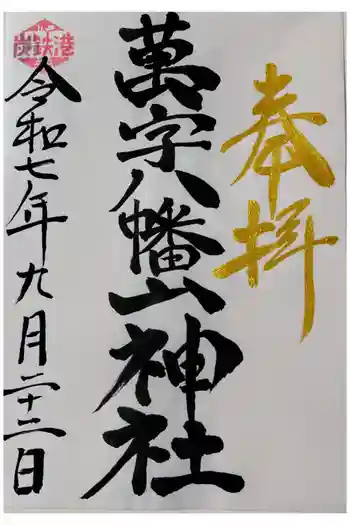 奉拝
萬字八幡山神社
令和七年九月二十三日
炭鉄港